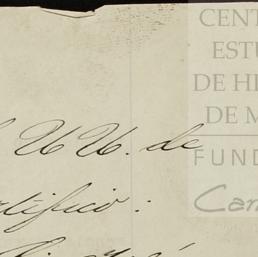 CENT
ESTU
DE HI
DE M
FUND
Car
UU. de
tifico: